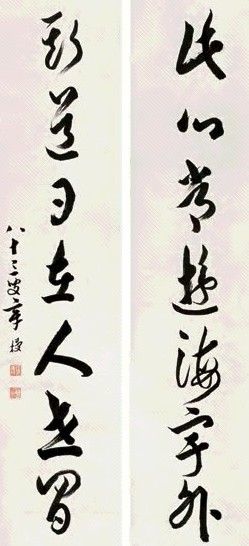 此心常遊海宇外
斯道自在人世間
八十三叟章梫